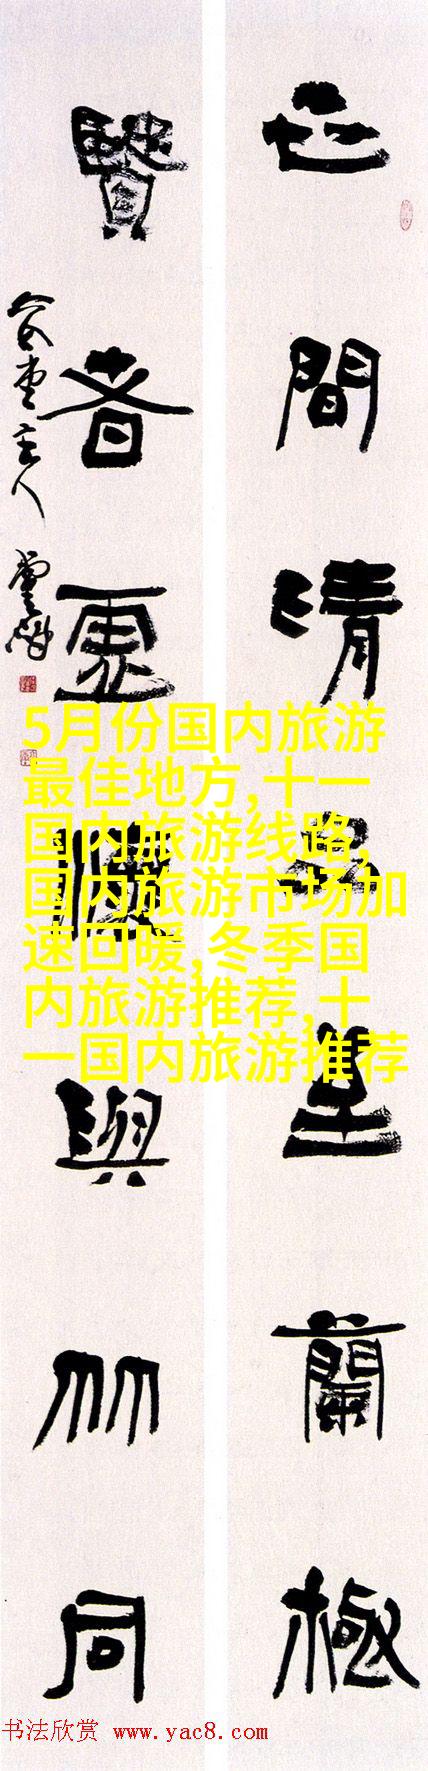 世間清品至蘭極
賢者虛懷與竹同
5月份国内旅游
最佳地方,十一
国内旅游线路,
国内旅游市场加
速回暖,冬季国
内旅游推荐,十
一国内旅游推荐
书法欣赏 www.yac8.com